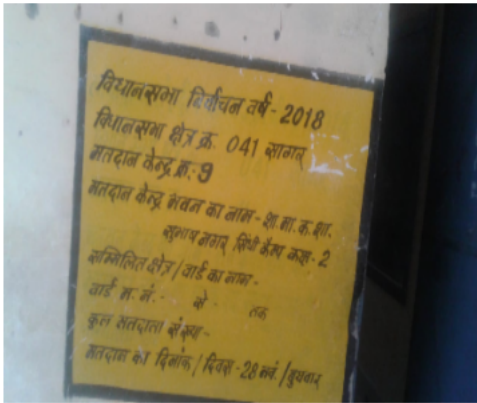 विधानसभा निर्वाचन वर्ष - 2018
विधानसभा क्षेत्र क्र. 041 सागर
मतदान केन्द्र क्र.- 9
मतदान केन्द्र भवन का नाम - शा. मा. क. शा.
सुभाष नगर सिंधी कैम्प कक्ष - 2
सम्मिलित क्षेत्र / वार्ड का नाम -
वार्ड म. नं. - से - तक
कुल मतदाता संख्या -
मतदान का दिनांक / दिवस - 28 नवं. / बुधवार